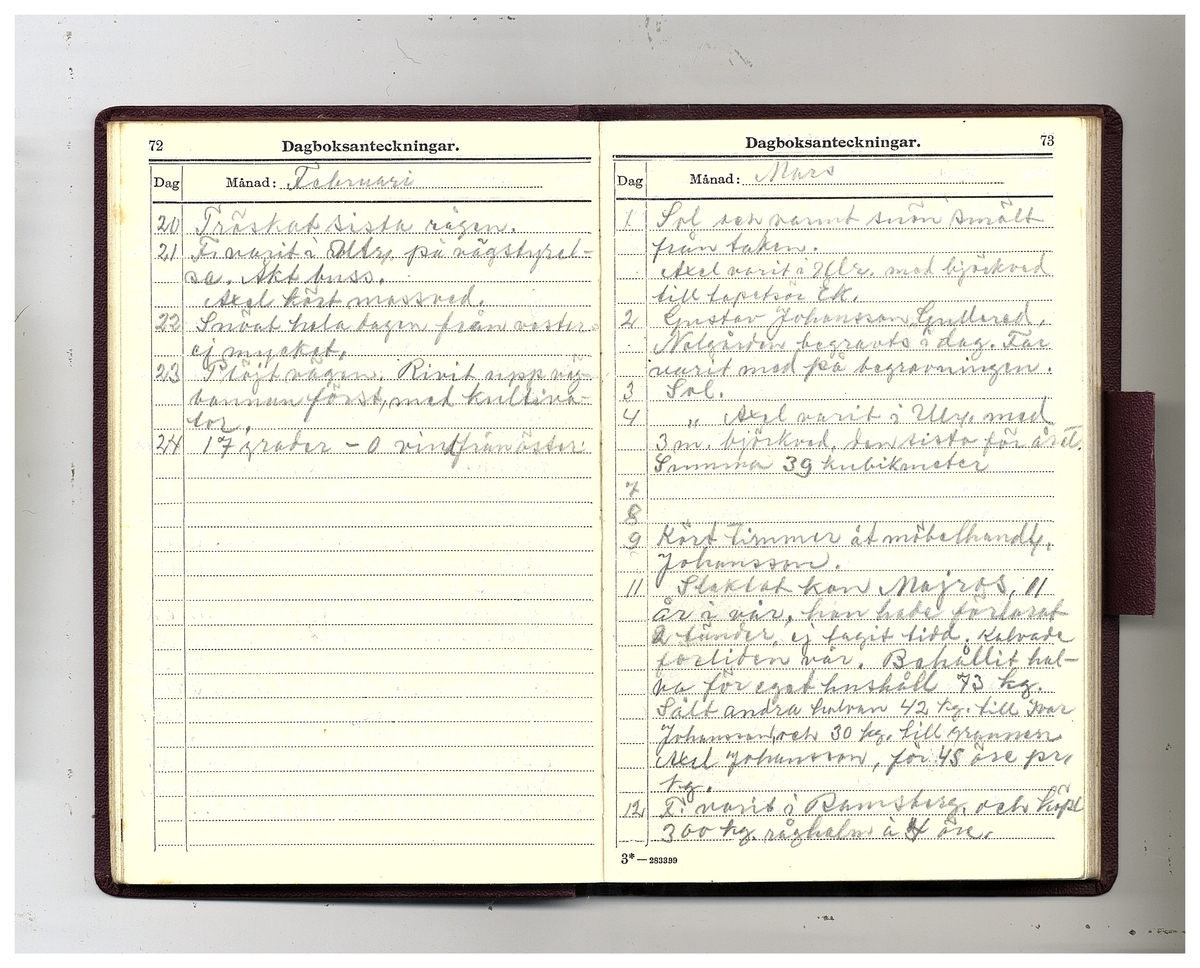 72
Dagboksanteckningar.
Dag
Månad: Februari
20 Tröskat sista rågen.
21 F. varit i Ulr. på vägstyrel-
se. Åkt buss.
Axel kört massved.
22 Snöat hela dagen från väster
ej mycket.
23 Plöjt vägen. Rivit upp väg-
bannan först, med kultiva-
tor.
24 17 grader - 0 vind från öster
Dagboksanteckningar.
73
Dag
Månad: Mars
1 Sol och varmt snön smält
från taken.
Axel varit i Ulr. med björkved
till tapetsör Ek.
2 Gustav Johansson, Gullered,
Nolgården begravts i dag. Far
varit med på begravningen.
3 Sol.
4 " Axel varit i Ulr. med
3 m. björkved. den sista för året.
Summa 39 kubikmeter
7
8
9 Kört timmer åt möbelhandl.
Johansson.
11 Slaktat kon Majros, 11
år i vår, hon hade förlorat
2 tänder, ej tagit tidd. Kalvade
förliden vår. Behållit hal-
va för eget hushåll 73 kg.
Sålt andra halvan 42 kg. till Ivar
Johansson, och 30 kg. till grannen
Axel Johansson, för 45 öre pr.
kg.
12 F. varit i Ramsberg och köpt
300 kg. råghalm à 4 öre.
3*—283399